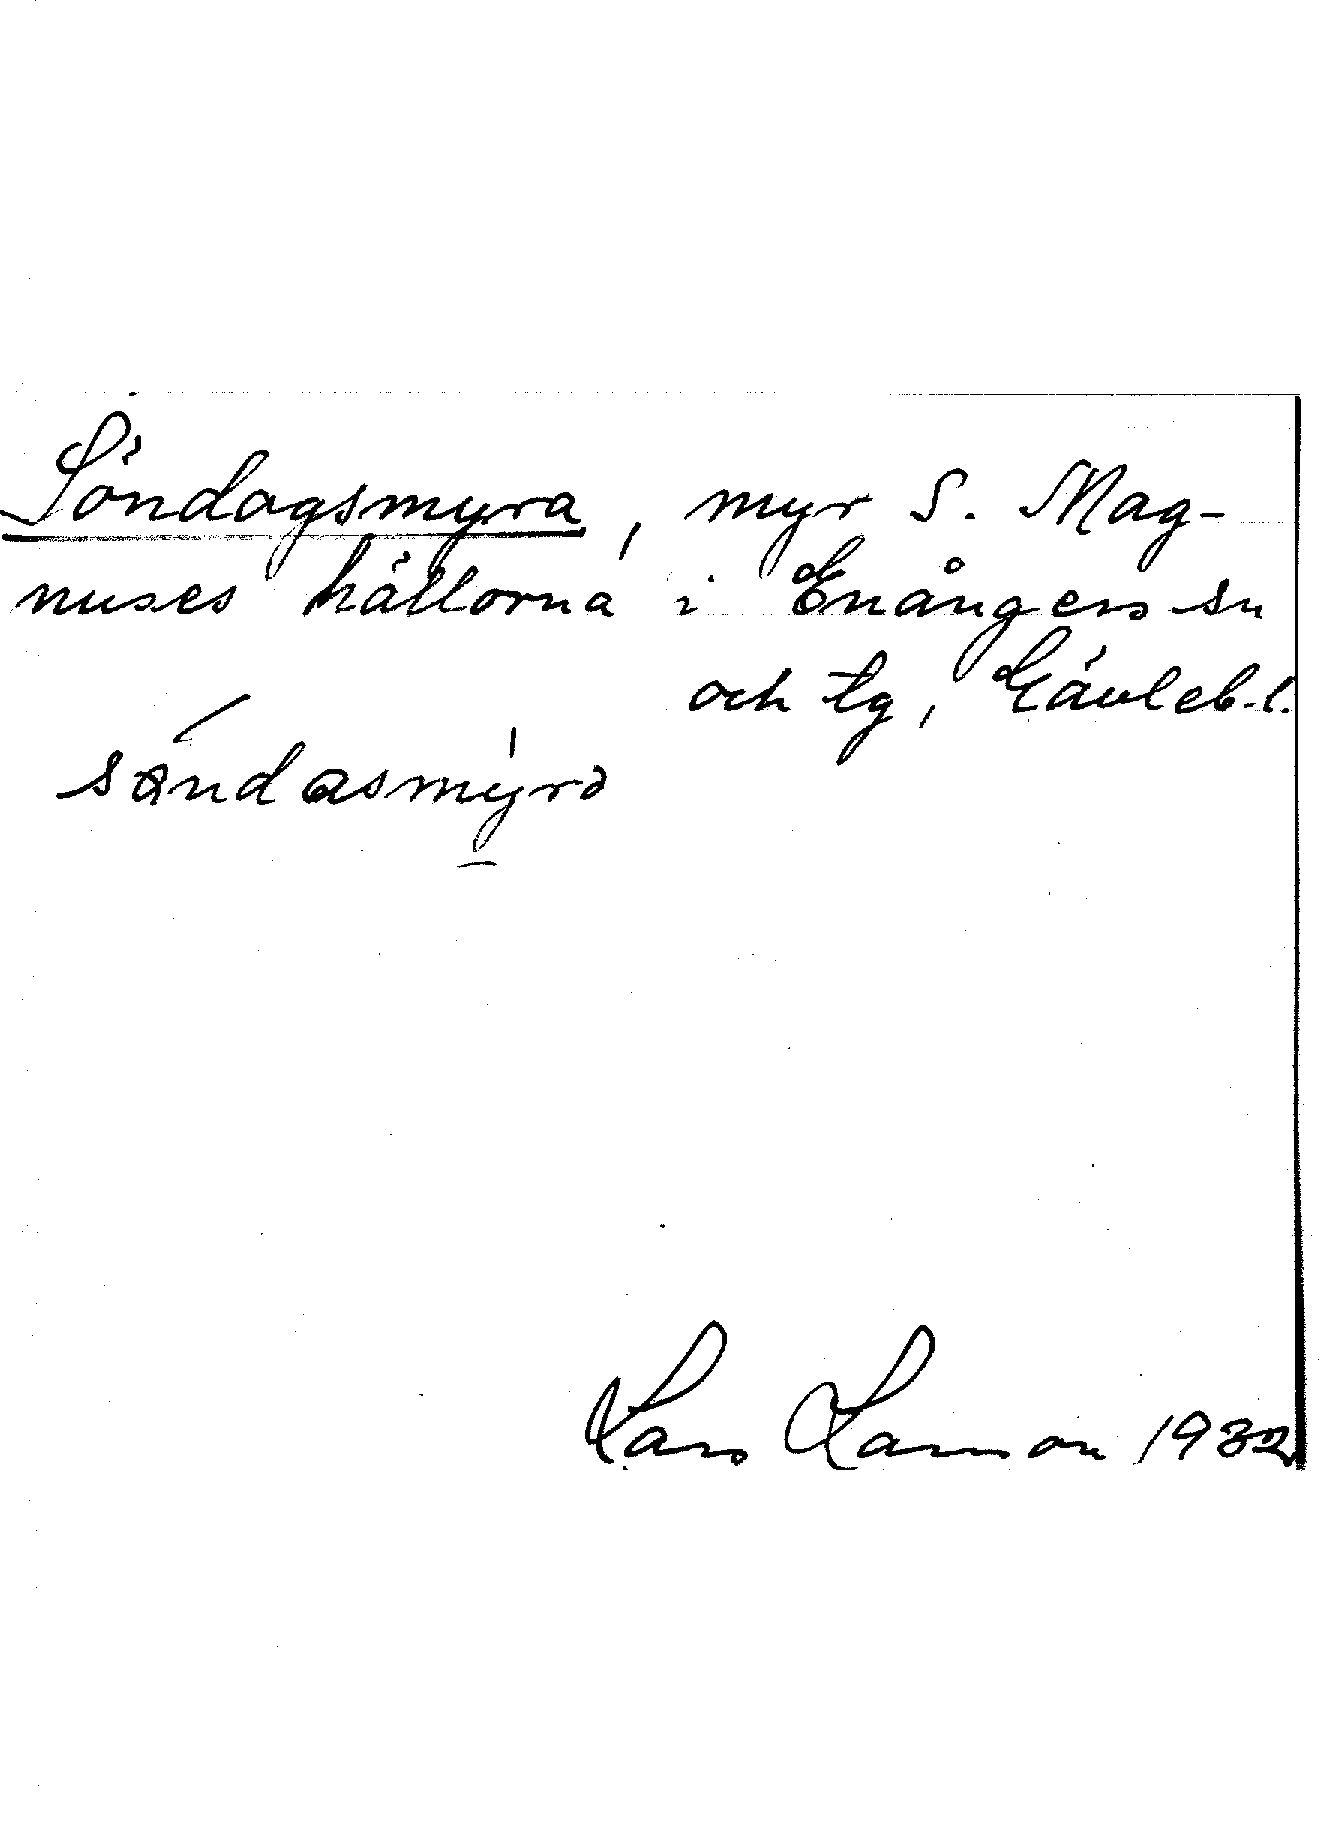 Söndagsmyra, myr S. Mag-
nuses hällorna i Enångers sn
och tg, Gävleb. l.
söndasmyrɔ
Lars Larsson 1932